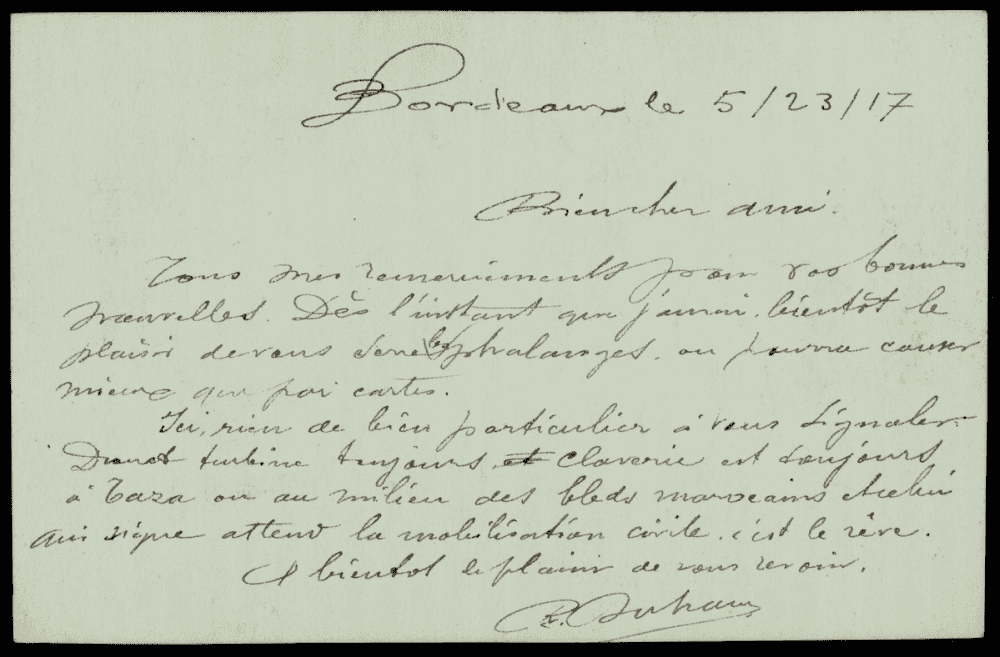 Bordeaux le 5/23/17
Bien cher ami.
Tous mes remerciements pour vos bonnes
nouvelles. Dès l'instant que j'aurai bientôt le
plaisir de vous serrer les phalanges. on pourra causer
mieux que par cartes.
Ici, rien de bien particulier à vous signaler.
turbine toujours, et Claverie est toujours
à Taza ou au milieu des bleds marocains et celui
qui signe attend la mobilisation civile. c'est le rêve.
A bientot le plaisir de vous revoir.